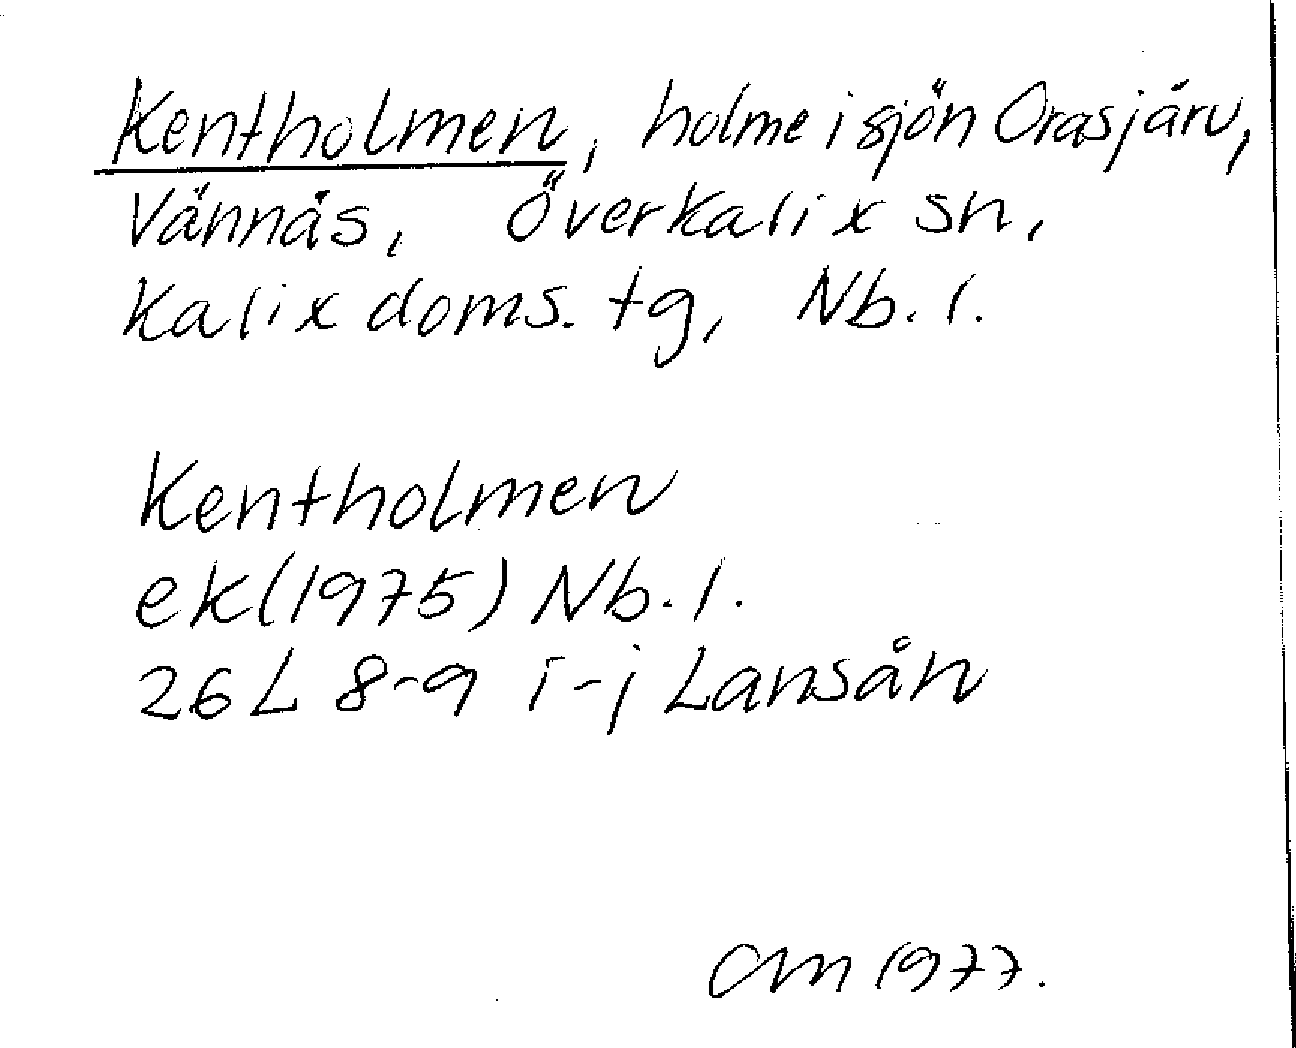 Kentholmen, holme i sjön Orasjärv,
Vännäs, Överkalix sn,
Kalix doms. tg, Nb. l.
Kentholmen
ek (1975) Nb. l.
26 L 8-9 i-j Lansån
CM 1977.